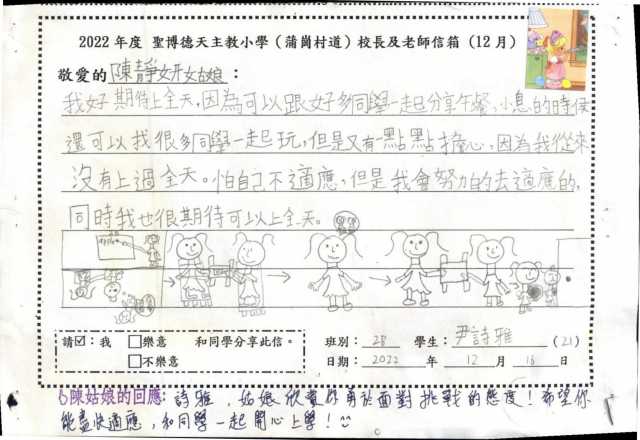 2022 年度 聖博德天主教小學（蒲崗村道）校長及老師信箱（12 月）
敬愛的 陳靜妍姑娘：
我好期待上全天，因為可以跟好多同學一起分享午餐，小息的時侯
還可以找很多同學一起玩，但是又有點點擔心，因為我從來
沒有上過全天。怕自己不適應，但是我會努力的去適應的，
同時我也很期待可以上全天。
請☑：我 □樂意 和同學分享此信。 班別： 2B 學生： 尹詩雅 (21)
□不樂意 日期： 2022 年 12 月 16 日
陳姑娘的回應：詩雅，姑娘欣賞你勇於面對挑戰的態度！希望你
能盡快適應，和同學一起開心上學！